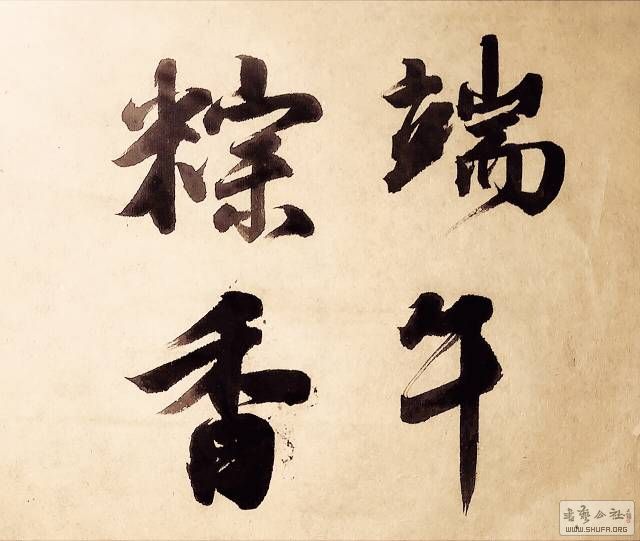 端午
粽香
書藝公社
WWW.SHUFA.ORG